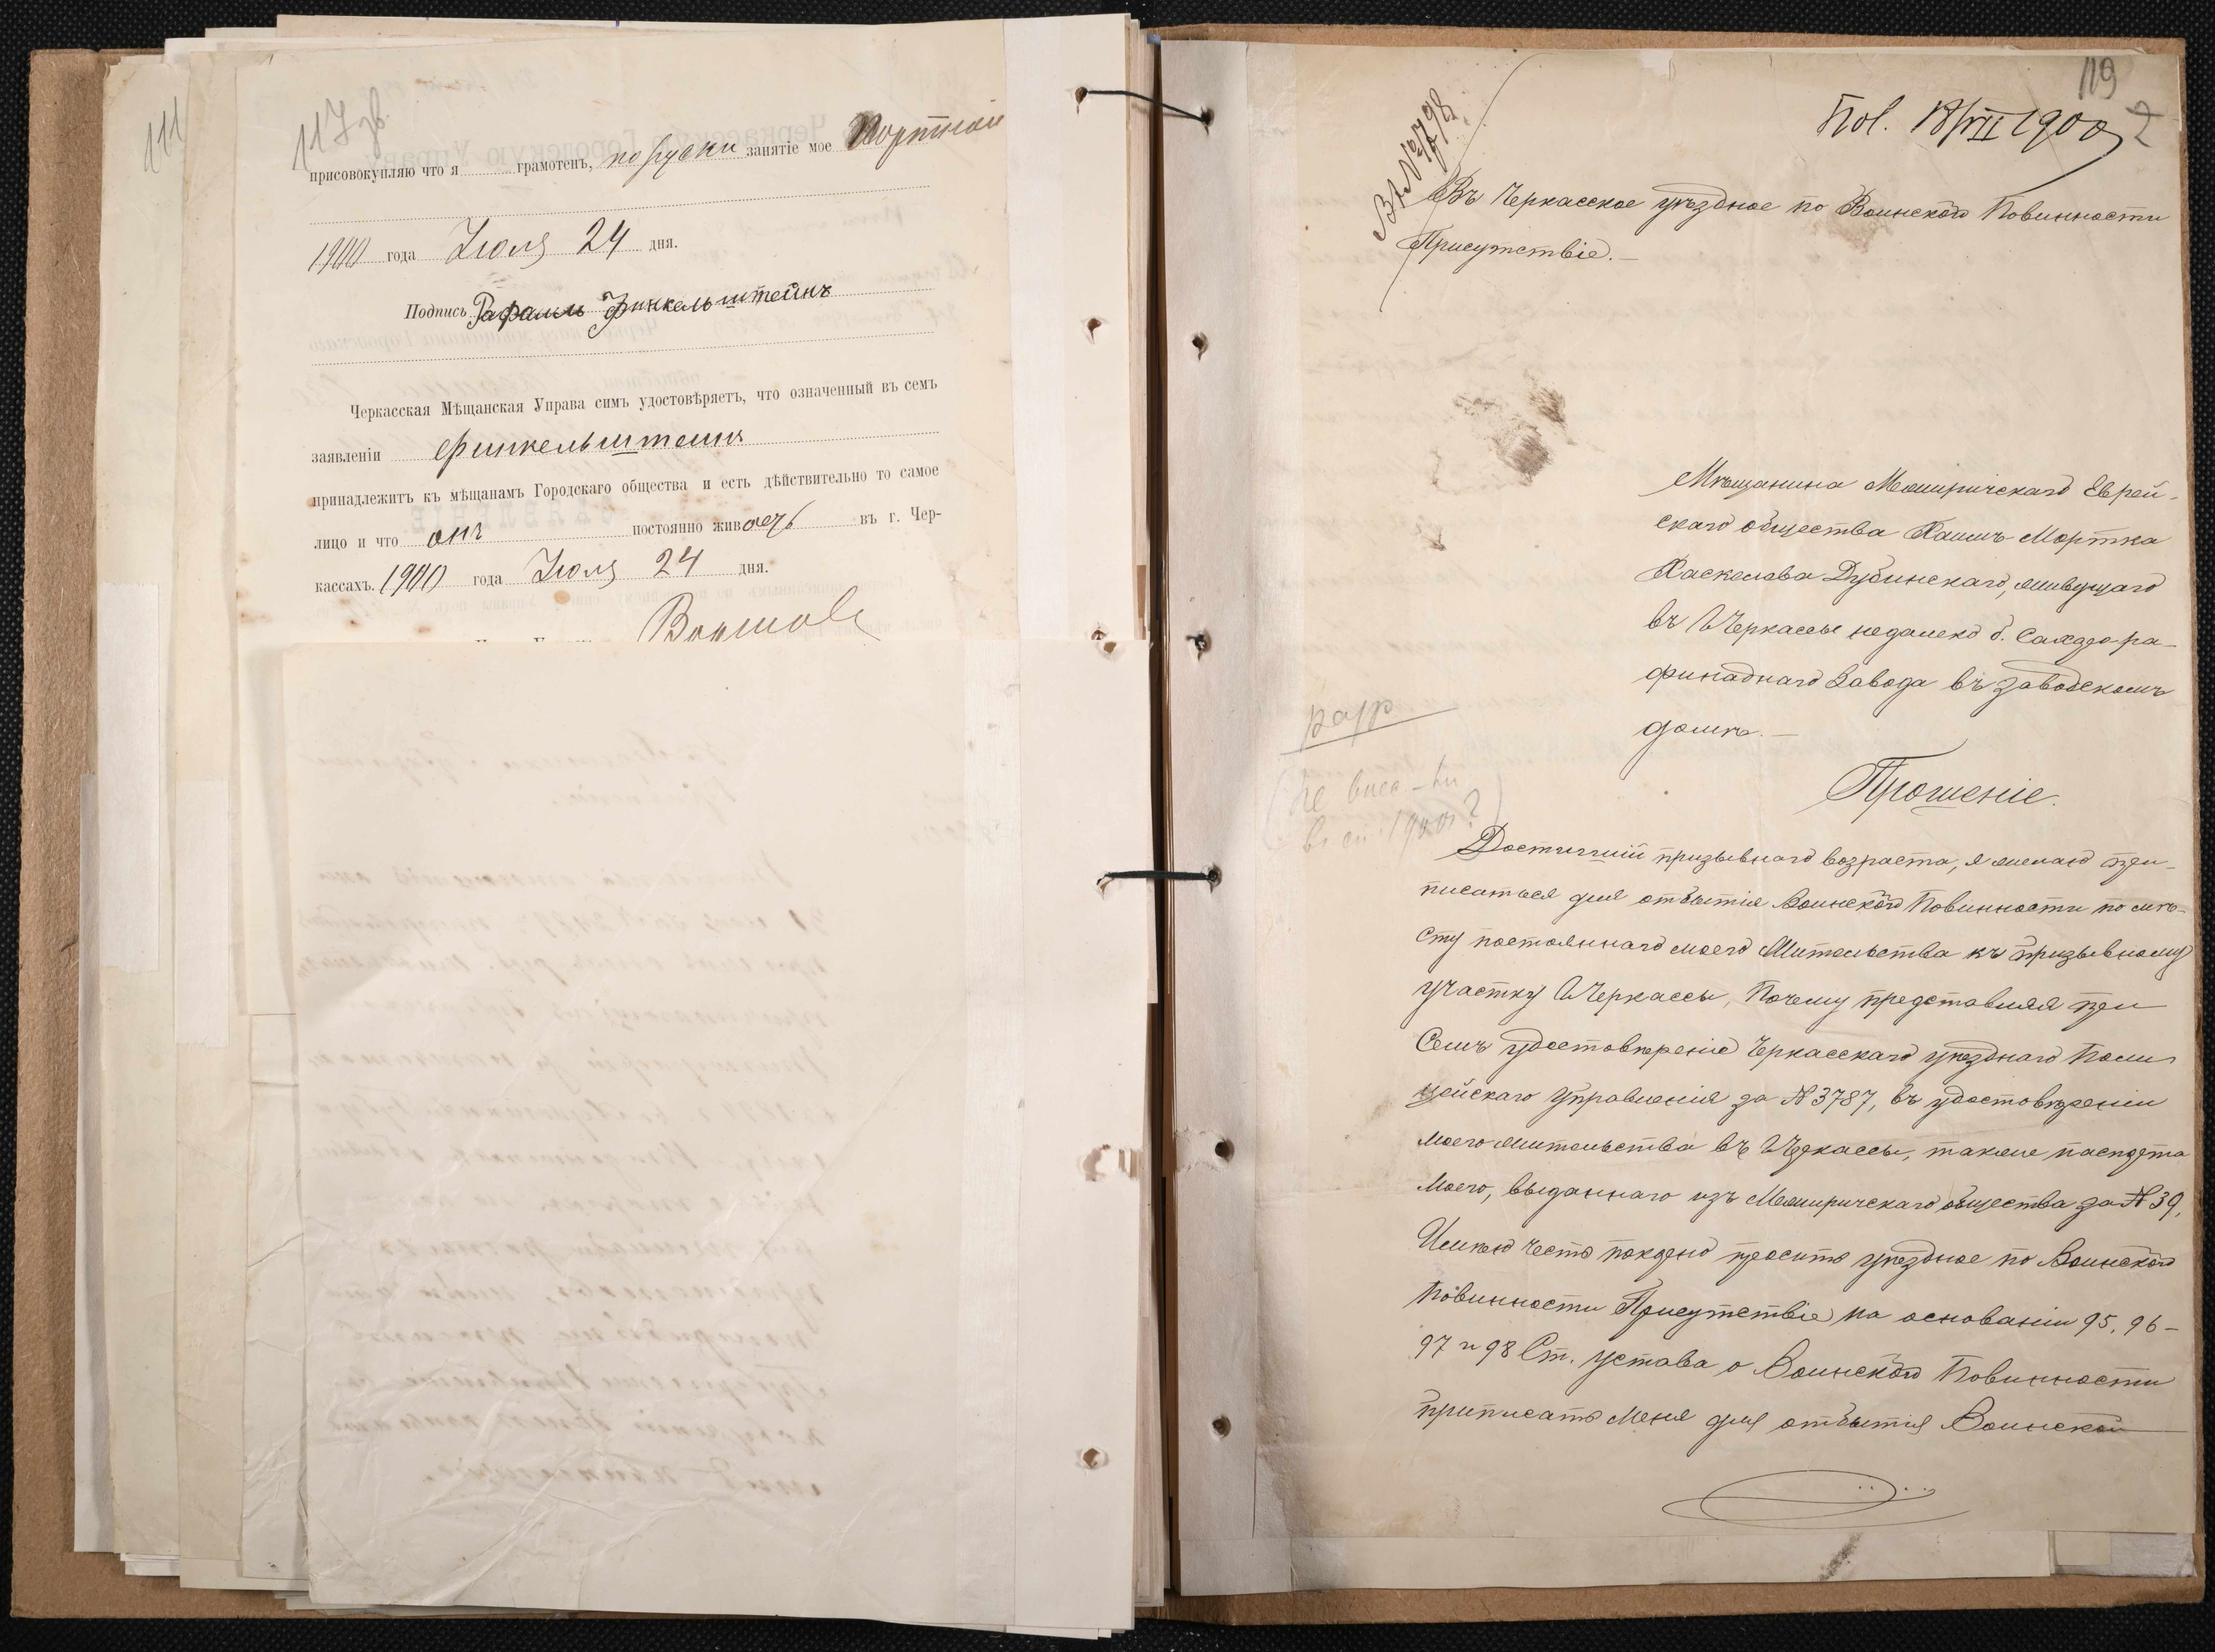 111
117 зв.
присовокупляю что я грамотенъ, по руски занятіе мое Портной
1900 года Іюля 24 дня.
Подпись Рафаилъ Финкельштейнъ
Черкасская Мѣщанская Управа симъ удостовѣряетъ, что означенный въ семъ
заявленіи Финкельштейнъ
принадлежитъ къ мѣщанамъ Городскаго общества и есть дѣйствительно то самое
лицо и что онъ постоянно живаетъ въ г. Чер-
кассахъ. 1900 года Іюля 24 дня.
119
2
Пол. 18/VII 1900
Вх №2798
Въ Черкасское уѣздное по Воинской Повинности
Присутствіе.—
Мѣщанина Межиричскаго Еврей-
скаго общества Хаимъ Мортка
Хаскелева Дубинскаго, живущаго
въ г Черкассы недалеко б. Сахаро-ра-
финаднаго Завода въ заводскомъ
домѣ.—
Прошеніе.
Достигшій призывнаго возраста, я желаю при-
писаться для отбытія Воинской Повинности по мѣ-
сту постояннаго моего Жительства къ призывному
участку г Черкассы, Почему представляя при
Семъ удостовѣреніе Черкасскаго уѣзднаго Поли
цейскаго Управленія за № 3787, въ удостовѣреніи
моего жительства въ г Черкассы, также паспорта
моего, выданнаго изъ Межиричскаго общества за № 39,
Имѣю честь покорно просить уѣздное по Воинской
Повинности Присутствіе на основаніи 95, 96-
97 и 98 Ст. устава о Воинской Повинности
приписать меня для отбытія Воинской